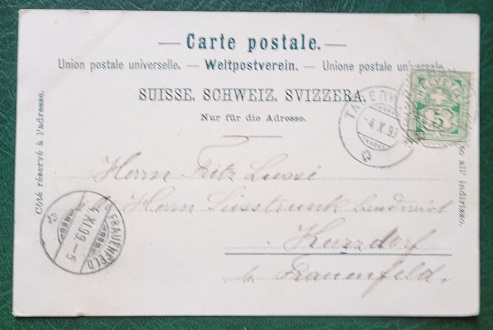 — Carte postale. —
Union postale universelle. — Weltpostverein. — Unione postale universale.
SUISSE. SCHWEIZ. SVIZZERA.
Nur für die Adresse.
Côté réservé à l'adresse.
all' indirizzo.
HELVETIA
5
FRAUENFELD
4.XI.99-5
Herrn Fritz
Herrn Süsstrunk Landwirt
Kurzdorf
b/ Frauenfeld.